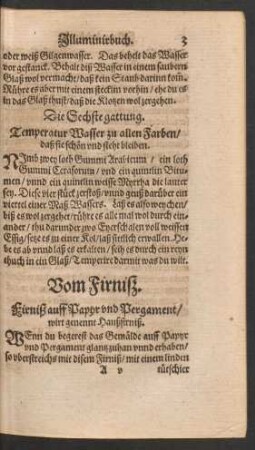 Illuminirbuch. 3
oder weiß Gilgenwasser. Das behelt das Wasser
vor gestanck. Behalt diß Wasser in einem saubern
Glaß wol vermacht/ daß kein Staub darinn kom.
Rühre es aber mit einem stecklin vorhin/ ehe du es
in das Glaß thust/ daß die Klotzen wol zergehen.
Die Sechste gattung.
Temperatur Wasser zu allen Farben/
daß sie schön vnd steht bleiben.
NImb zwey loth Gummi Arabicum / ein loth
Gummi Cerasorum/ vnd ein quintlin Bitu-
men/ vnnd ein quintlin weisse Myrrha die lauter
sey. Dise vier stück zerstoß/ vnnd geuß darüber ein
viertel einer Maß Wassers. Laß es also weychen/
biß es wol zergehet/ rühre es alle mal wol durch ein-
ander / thu darunder zwo Eyerschalen voll weissen
Essig/ setze es zu einer Kol/ laß sittlich erwallen. He-
be es ab vnnd laß es erkalten/ seih es durch ein reyn
thuch in ein Glaß/ Temperire darmit was du wilt.
Vom Firniß.
Firniß auff Papyr vnd Pergament/
wirt genennt Haußfirniß.
WEnn du begerest das Gemälde auff Papyr
vnd Pergament glantz zuhan vnnd erhaben/
so vberstreichs mit disem Firniß/ mit einem linden
A v